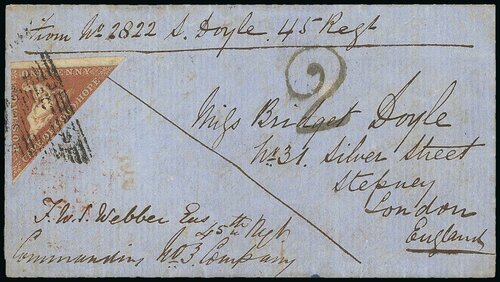 From No 2822 S. Doyle, 45 Regt
2
ONE PENNY
POSTAGE
CAPE OF GOOD HOPE
Miss Bridget Doyle
No 31. Silver Street
Stepney
London
England
F.W.S. Webber Ens
45th Regt
Commanding No 3. Company